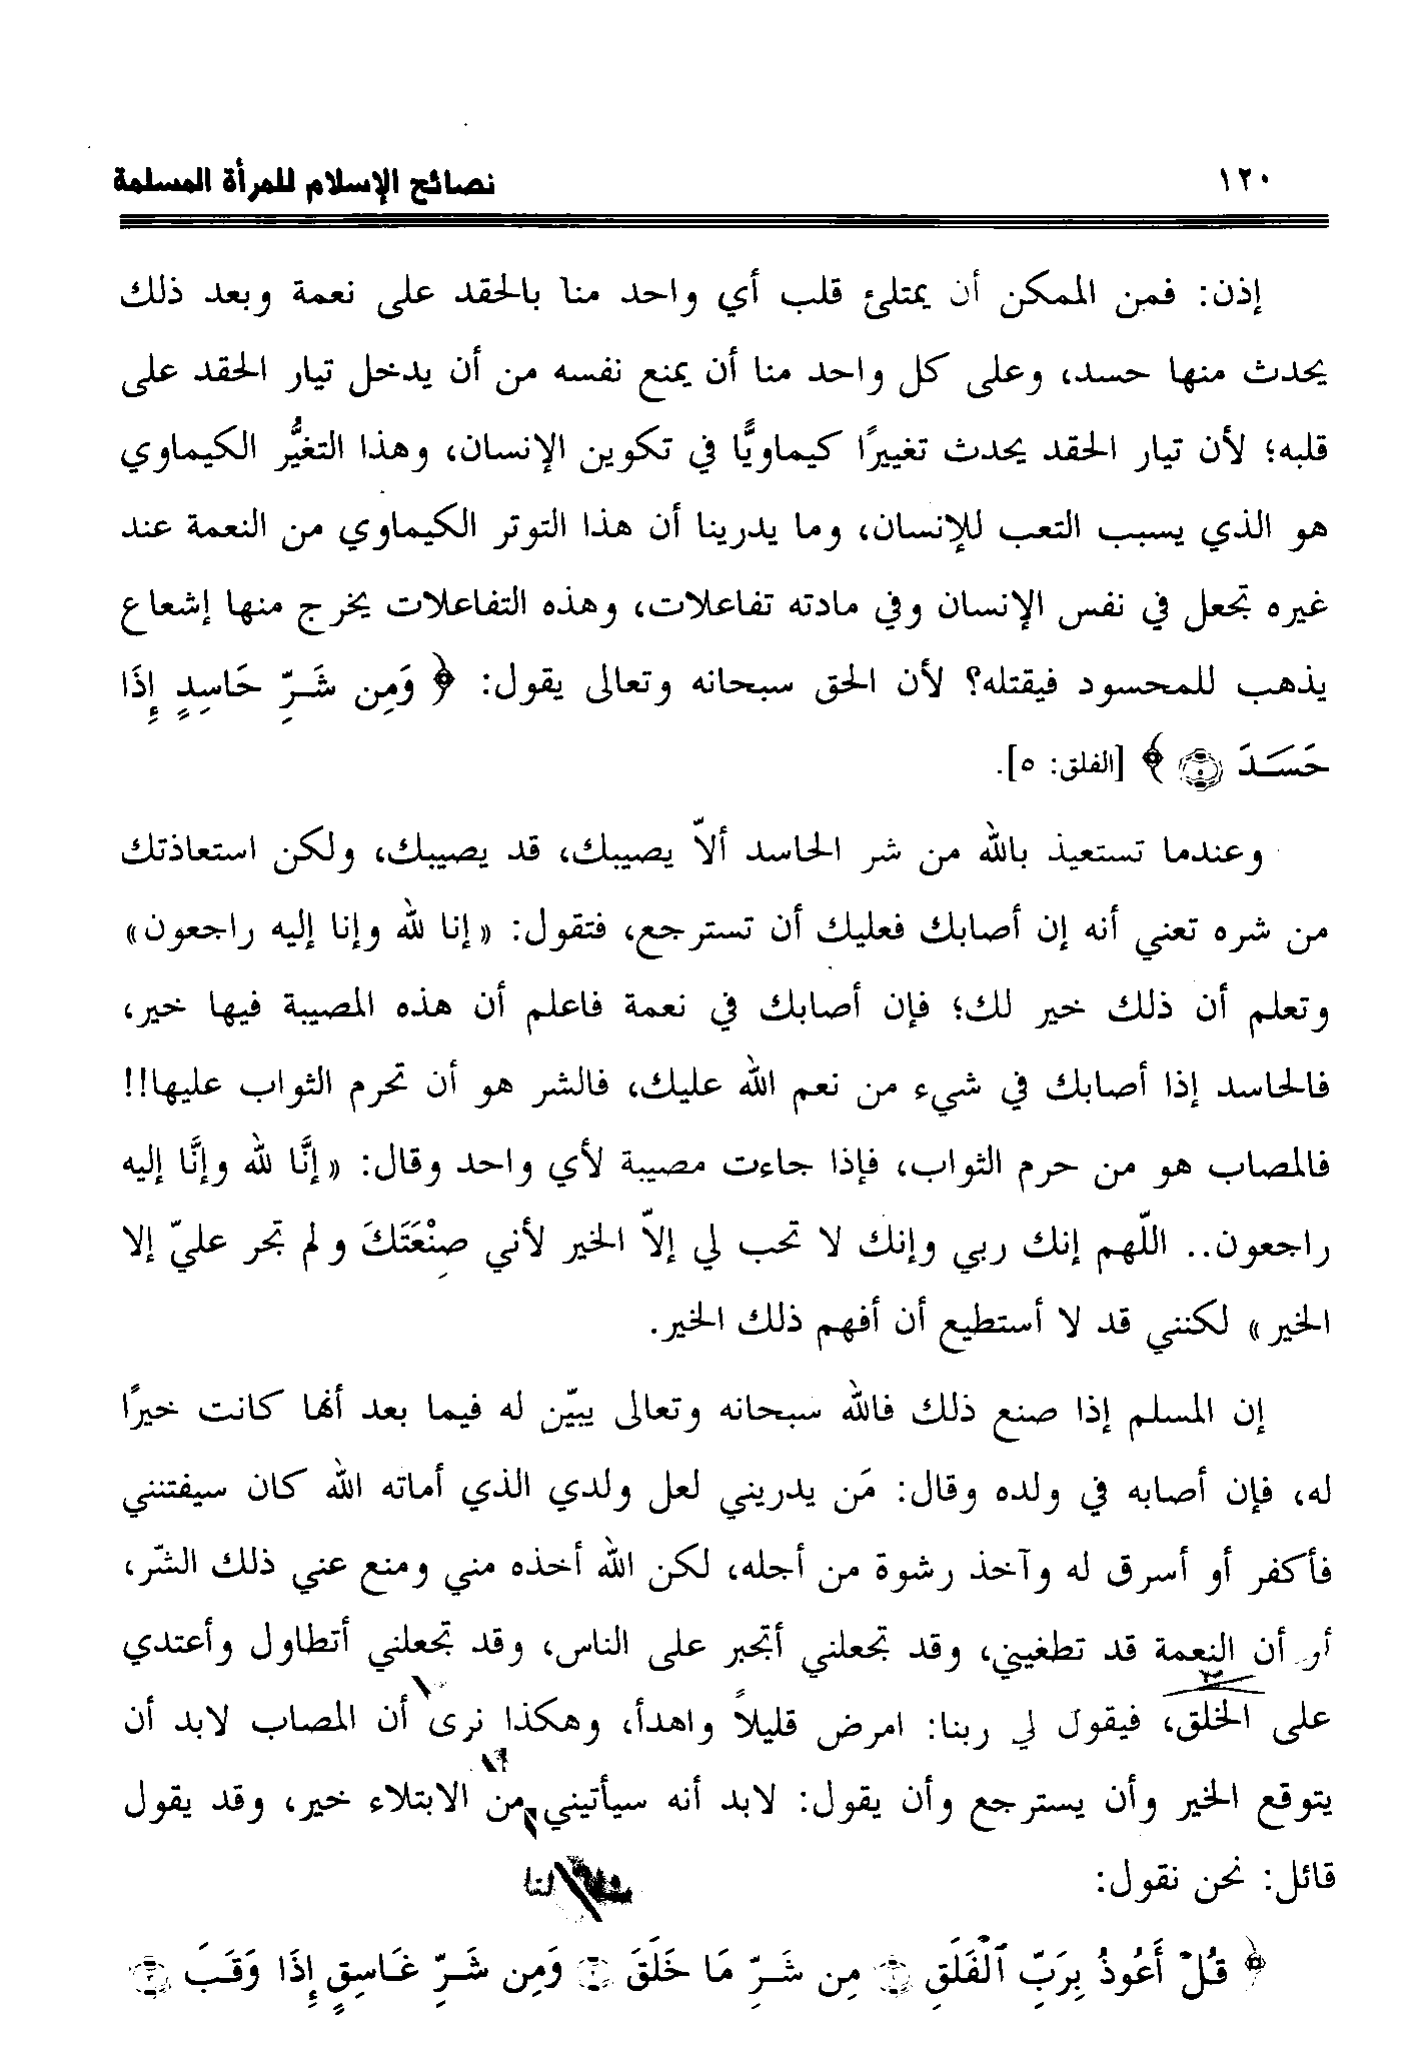 ١٢٠ نصائح الإسلام للمرأة المسلمة
إذن: فمن الممكن أن يمتلئ قلب أي واحد منا بالحقد على نعمة وبعد ذلك
يحدث منها حسد، وعلى كل واحد منا أن يمنع نفسه من أن يدخل تيار الحقد على
قلبه؛ لأن تيار الحقد يحدث تغييرًا كيماويًّا في تكوين الإنسان، وهذا التغيُّر الكيماوي
هو الذي يسبب التعب للإنسان، وما يدرينا أن هذا التوتر الكيماوي من النعمة عند
غيره تجعل في نفس الإنسان وفي مادته تفاعلات، وهذه التفاعلات يخرج منها إشعاع
يذهب للمحسود فيقتله؟ لأن الحق سبحانه وتعالى يقول: ﴿ وَمِن شَرِّ حَاسِدٍ إِذَا
حَسَدَ ۝٥ ﴾ [الفلق: ٥].
وعندما تستعيذ بالله من شر الحاسد ألاّ يصيبك، قد يصيبك، ولكن استعاذتك
من شره تعني أنه إن أصابك فعليك أن تسترجع، فتقول: «إنا لله وإنا إليه راجعون»
وتعلم أن ذلك خير لك؛ فإن أصابك في نعمة فاعلم أن هذه المصيبة فيها خير،
فالحاسد إذا أصابك في شيء من نعم الله عليك، فالشر هو أن تحرم الثواب عليها!!
فالمصاب هو من حرم الثواب، فإذا جاءت مصيبة لأي واحد وقال: «إنَّا لله وإنَّا إليه
راجعون.. اللّهم إنك ربي وإنك لا تحب لي إلاّ الخير لأني صِنْعَتَكَ ولم تجر عليّ إلا
الخير» لكنني قد لا أستطيع أن أفهم ذلك الخير.
إن المسلم إذا صنع ذلك فالله سبحانه وتعالى يبيّن له فيما بعد أنها كانت خيرًا
له، فإن أصابه في ولده وقال: مَن يدريني لعل ولدي الذي أماته الله كان سيفتنني
فأكفر أو أسرق له وآخذ رشوة من أجله، لكن الله أخذه مني ومنع عني ذلك الشّر،
أو أن النعمة قد تطغيني، وقد تجعلني أتجبر على الناس، وقد تجعلني أتطاول وأعتدي
على الخلق، فيقول لي ربنا: امرض قليلاً واهدأ، وهكذا نرى أن المصاب لابد أن
يتوقع الخير وأن يسترجع وأن يقول: لابد أنه سيأتيني من الابتلاء خير، وقد يقول
قائل: نحن نقول: لنا
﴿ قُلْ أَعُوذُ بِرَبِّ ٱلْفَلَقِ ۝١ مِن شَرِّ مَا خَلَقَ ۝٢ وَمِن شَرِّ غَاسِقٍ إِذَا وَقَبَ ۝٣